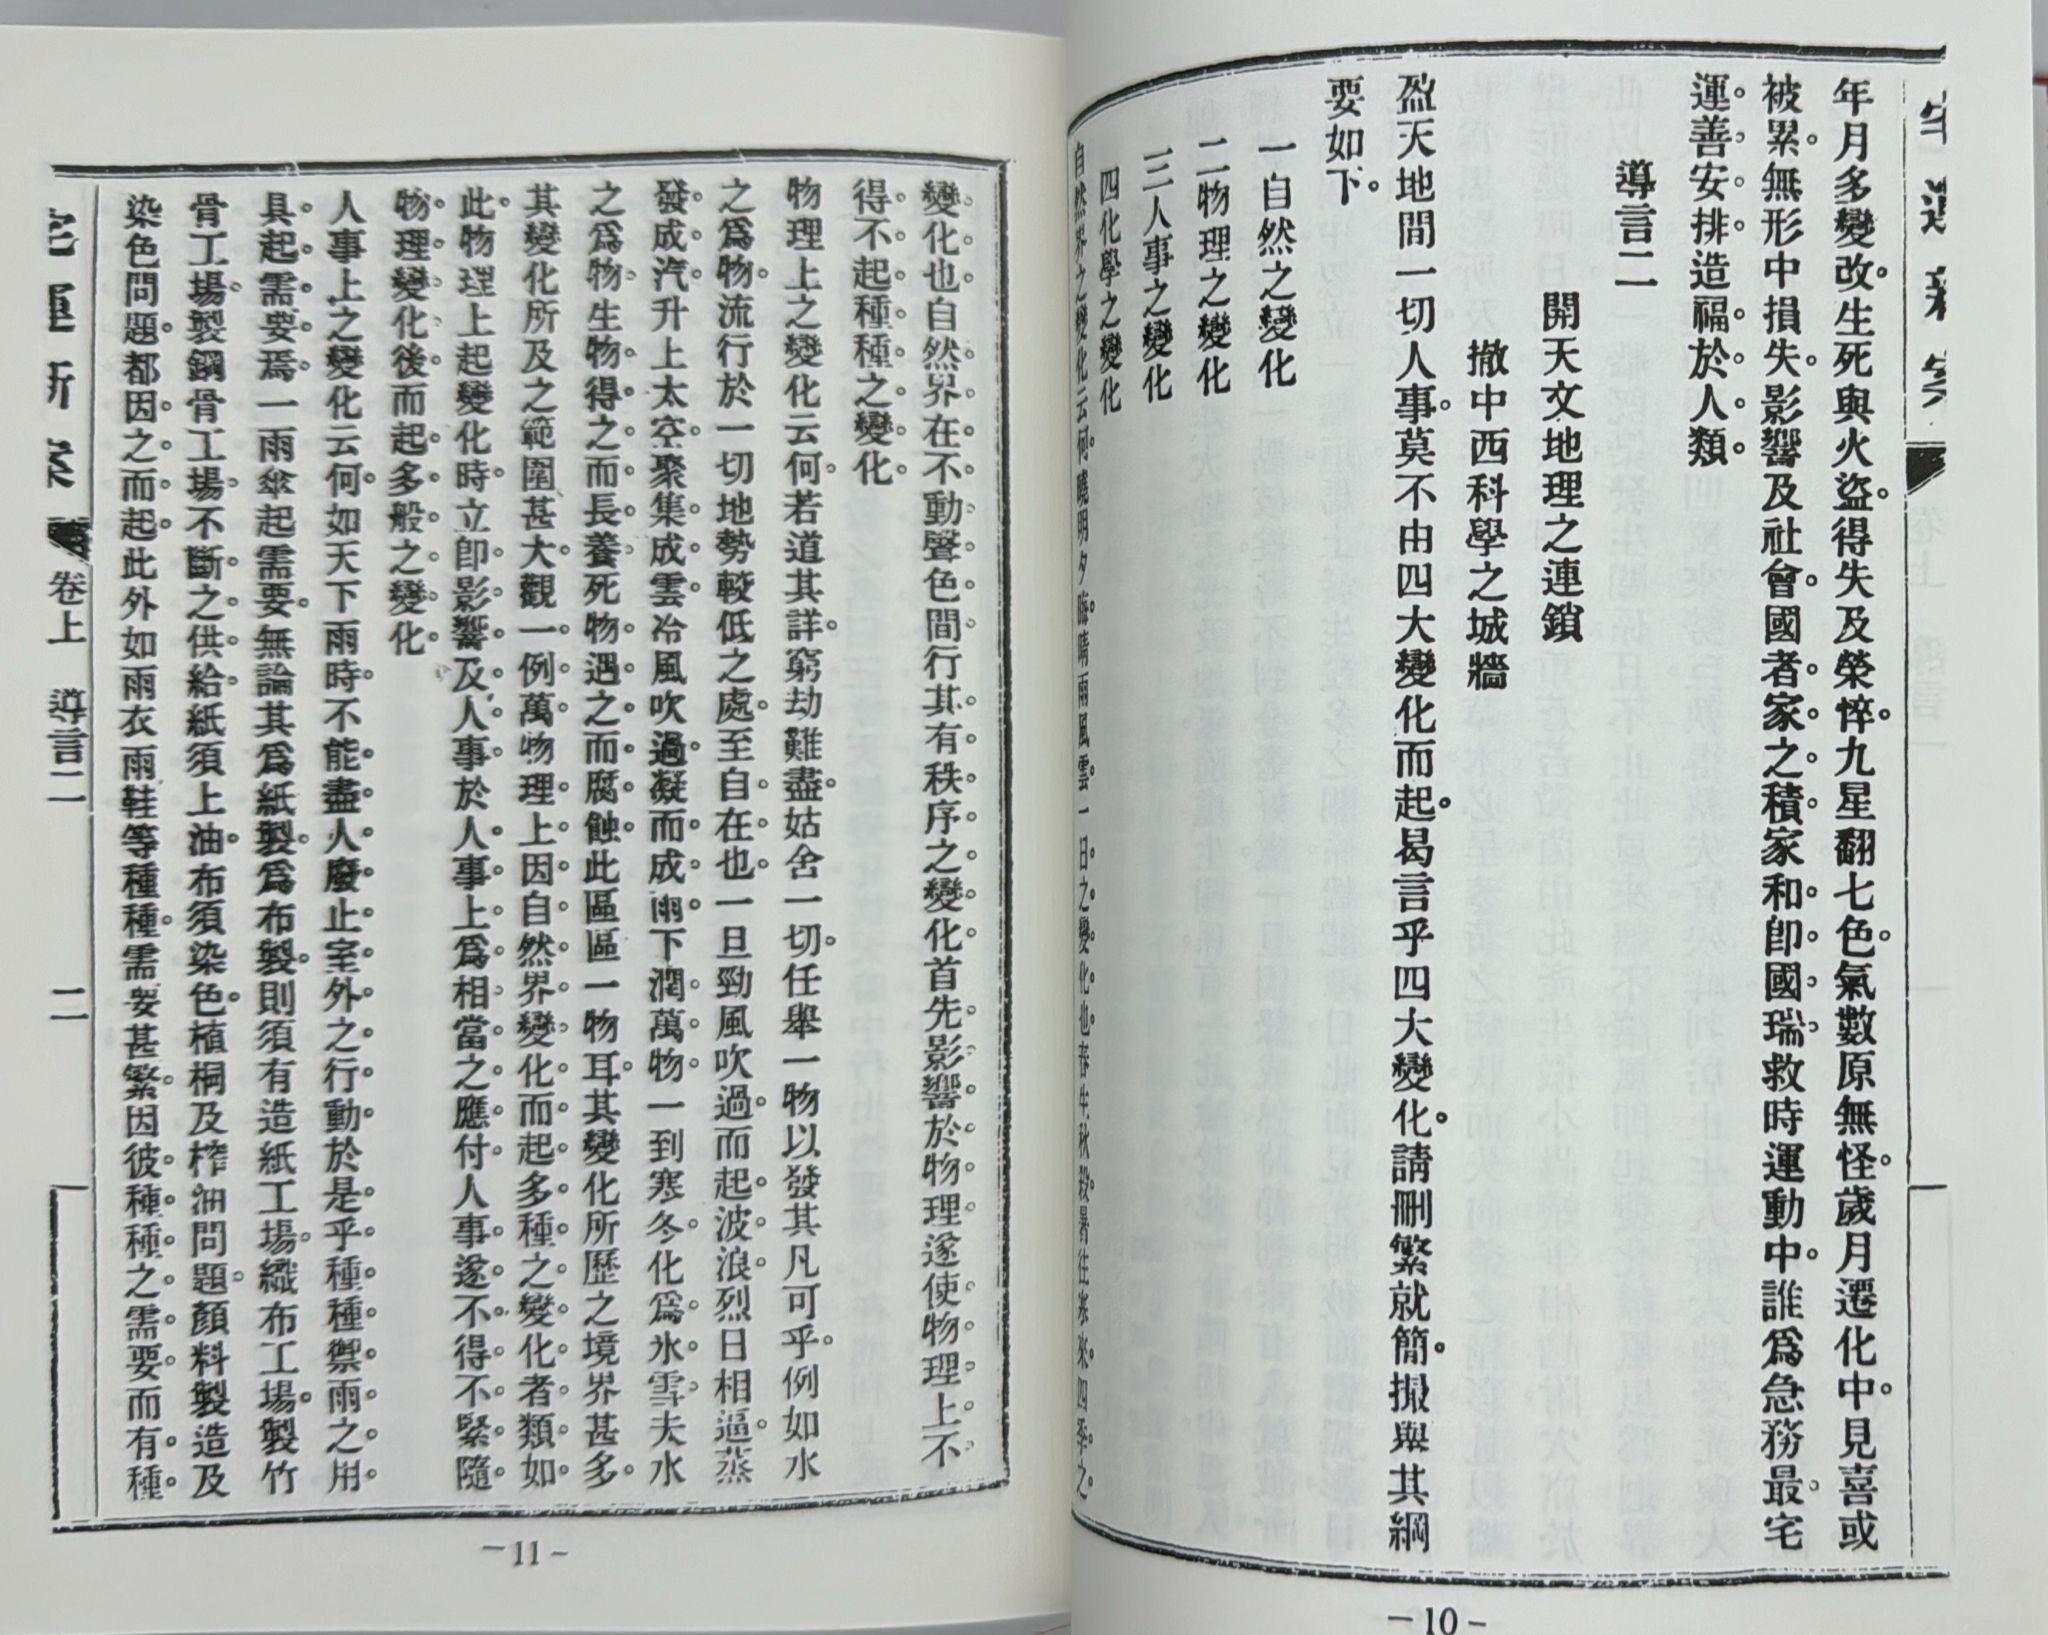 宅運新案
年月多變改。生死與火盜。得失及榮悴。九星翻七色。氣數原無怪。歲月遷化中。見喜或
被累。無形中損失。影響及社會。國者家之積。家和卽國瑞。救時運動中。誰爲急務最。宅
運善安排。造福於人類。
導言二
開天文地理之連鎖
撤中西科學之城牆
盈天地間一切人事。莫不由四大變化而起。曷言乎四大變化。請刪繁就簡。撮與其綱
要如下。
一自然之變化
二物理之變化
三人事之變化
四化學之變化
自然界之變化云何。曉明夕晦。晴雨風雲。一日之變化也。春生秋殺。暑往寒來。四季之。
變化也。自然界在不動聲色間。行其有秩序之變化。首先影響於物理。遂使物理上不
得不起種種之變化。
物理上之變化云何。若道其詳。窮劫難盡。姑舍一切。任舉一物以發其凡可乎。例如水
之爲物。流行於一切地勢較低之處。至自在也。一旦勁風吹過。而起波浪。烈日相逼。蒸
發成汽。升上太空。聚集成雲。冷風吹過。凝而成雨。下潤萬物。一到寒冬。化爲氷雪。夫水
之爲物。生物得之而長養。死物遇之而腐蝕。此區區一物耳。其變化所歷之境界甚多。
其變化所及之範圍甚大。觀一例萬。物理上因自然界變化而起多種之變化者類如
此。物理上起變化時。立卽影響及人事。於人事上爲相當之應付。人事遂不得不緊隨
物理變化後而起多般之變化。
人事上之變化云何。如天下雨時。不能盡人廢止室外之行動。於是乎種種禦雨之用
具。起需要焉。一雨傘起需要。無論其爲紙製爲布製。則須有造紙工場。織布工場。製竹
骨工場。製鋼骨工場。不斷之供給。紙須上油。布須染色。植桐及榨油問題。顏料製造及
染色問題。都因之而起。此外如雨衣雨鞋等種種。需要甚繁。因彼種種之需要。而有種。
宅運新案 卷上 導言二 二
－11－
－10－